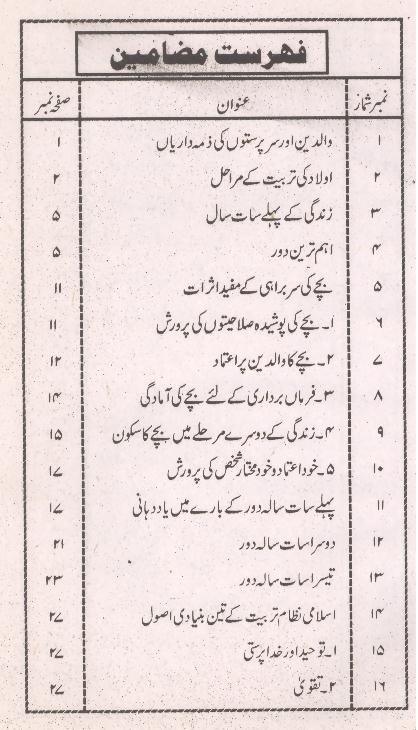 فہرست مضامین
نمبر شمار عنوان صفحہ نمبر
۱ والدین اور سرپرستوں کی ذمہ داریاں ۱
۲ اولاد کی تربیت کے مراحل ۲
۳ زندگی کے پہلے سات سال ۵
۴ اہم ترین دور ۵
۵ بچے کی سربراہی کے مفید اثرات ۱۱
۶ ۱۔ بچے کی پوشیدہ صلاحیتوں کی پرورش ۱۱
۷ ۲۔ بچے کا والدین پر اعتماد ۱۲
۸ ۳۔ فرماں برداری کے لئے بچے کی آمادگی ۱۴
۹ ۴۔ زندگی کے دوسرے مرحلے میں بچے کا سکون ۱۵
۱۰ ۵۔ خود اعتماد و خود مختار شخص کی پرورش ۱۷
۱۱ پہلے سات سالہ دور کے بارے میں یاد دہانی ۱۷
۱۲ دوسرا سات سالہ دور ۲۱
۱۳ تیسرا سات سالہ دور ۲۳
۱۴ اسلامی نظام تربیت کے تین بنیادی اصول ۲۷
۱۵ ۱۔ توحید اور خدا پرستی ۲۷
۱۶ ۲۔ تقویٰ ۲۷